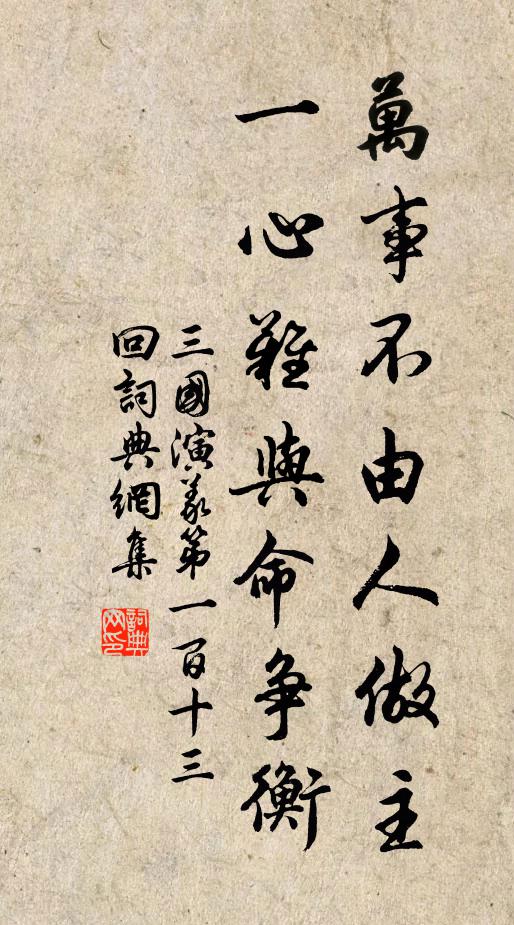 萬事不由人做主
一心難與命争衡
三國演義第一百十三
回詞典網集
詞典
网印